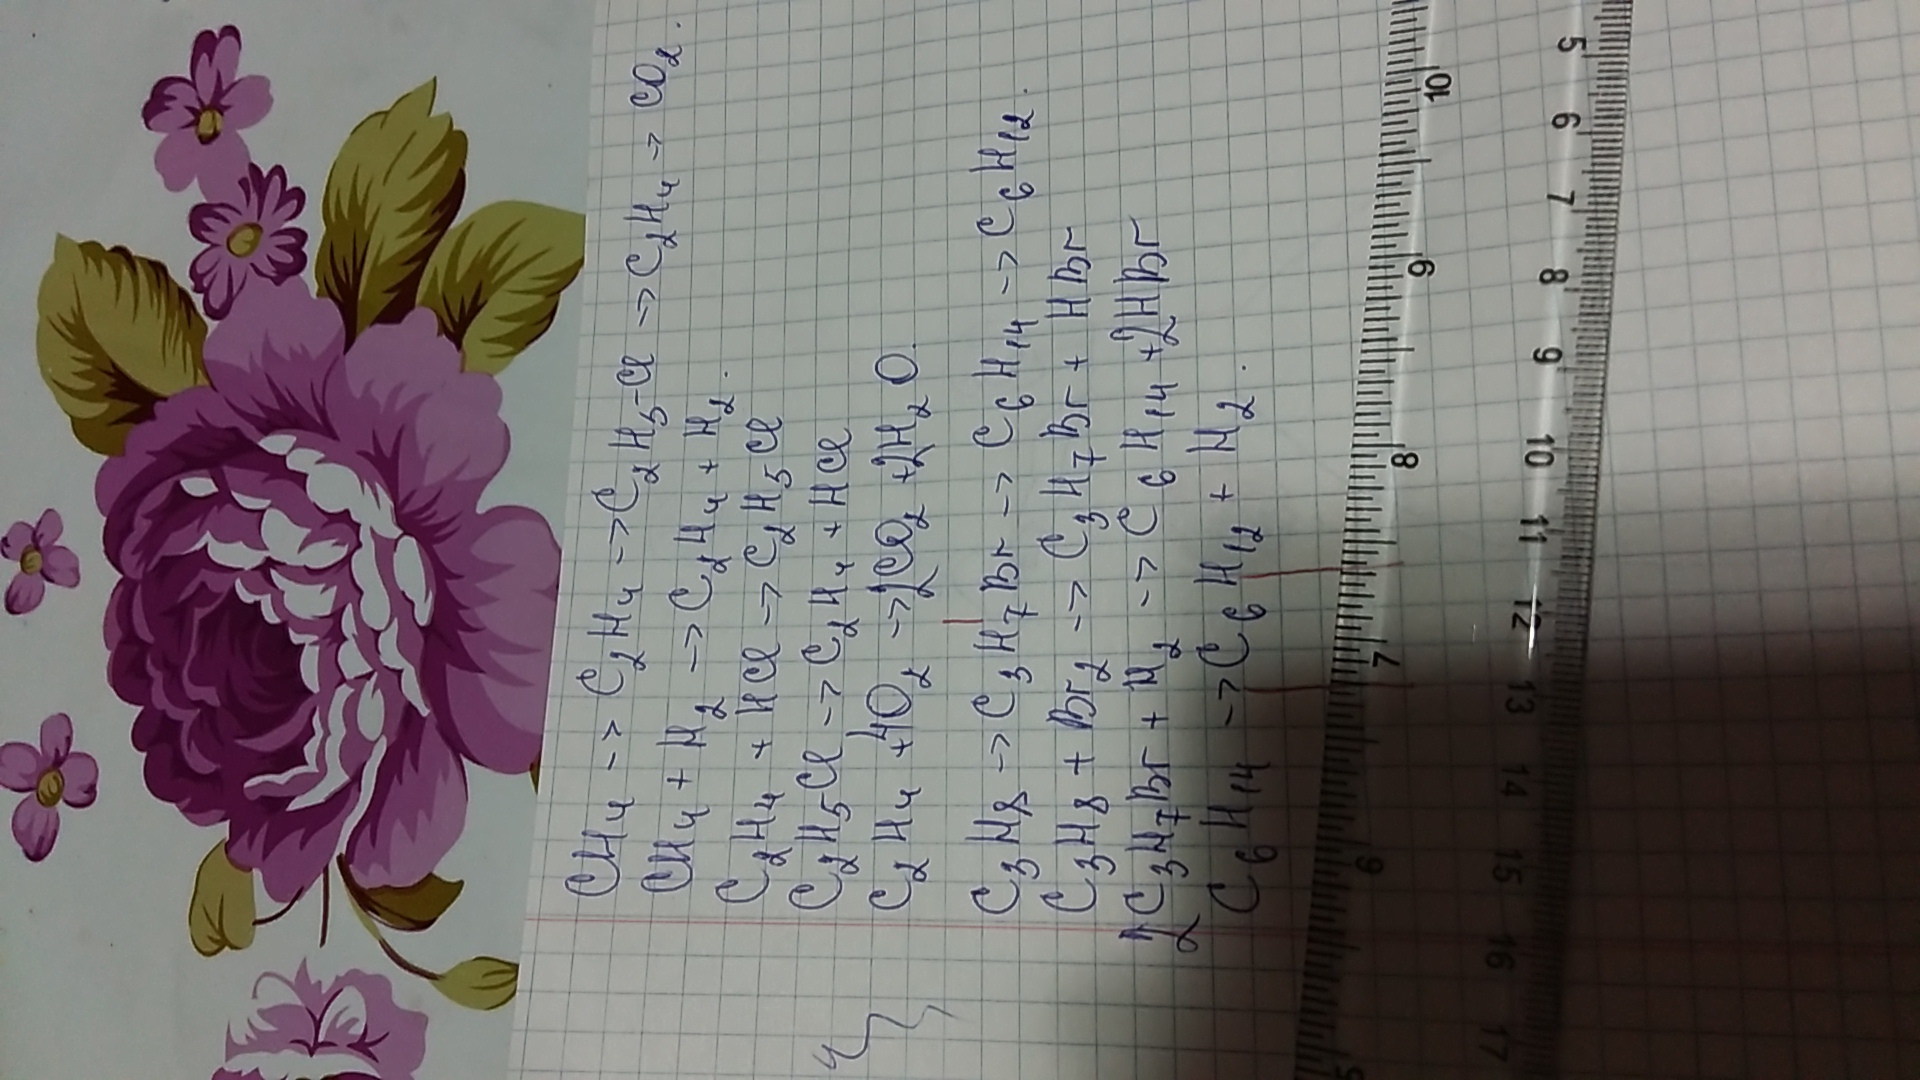 CH₄ -> C₂H₄ -> C₂H₅-Cl -> C₂H₄ -> CO₂.
CH₄ + H₂ -> C₂H₄ + H₂.
C₂H₄ + HCl -> C₂H₅Cl
C₂H₅Cl -> C₂H₄ + HCl
C₂H₄ + 4O₂ -> 2CO₂ + 2H₂O.
C₃H₈ -> C₃H₇Br -> C₆H₁₄ -> C₆H₁₂.
C₃H₈ + Br₂ -> C₃H₇Br + HBr
2C₃H₇Br + H₂ -> C₆H₁₄ + 2HBr
C₆H₁₄ -> C₆H₁₂ + H₂.
6 7 8 9 10
5 6 7 8 9 10 11 12 13 14 15 16 17